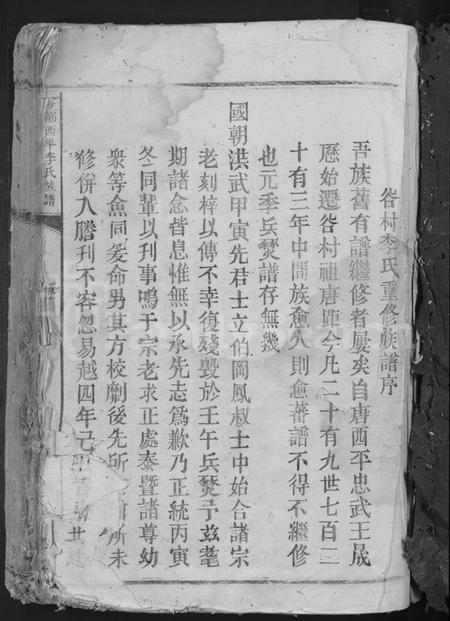 咎村李氏重修族譜序
吾族舊有譜繼修者屢矣自唐西平忠武王晟
歷始遷咎村祖唐距今凡二十有九世七百二
十有三年中間族愈久則愈蕃譜不得不繼修
也元季兵燹譜存無幾
國朝洪武甲寅先君士立伯岡鳳叔士中始合諸宗
老刻梓以傳不幸復殘毀於壬午兵燹予玆耄
期諸念皆息惟無以承先志爲歉乃正統丙寅
冬同輩以刊事鳴于宗老求正處泰暨諸尊幼
衆等僉同爰命男其方校劘後先所 所未
修併入謄刊不容忽易越四年己
都西平李氏族譜